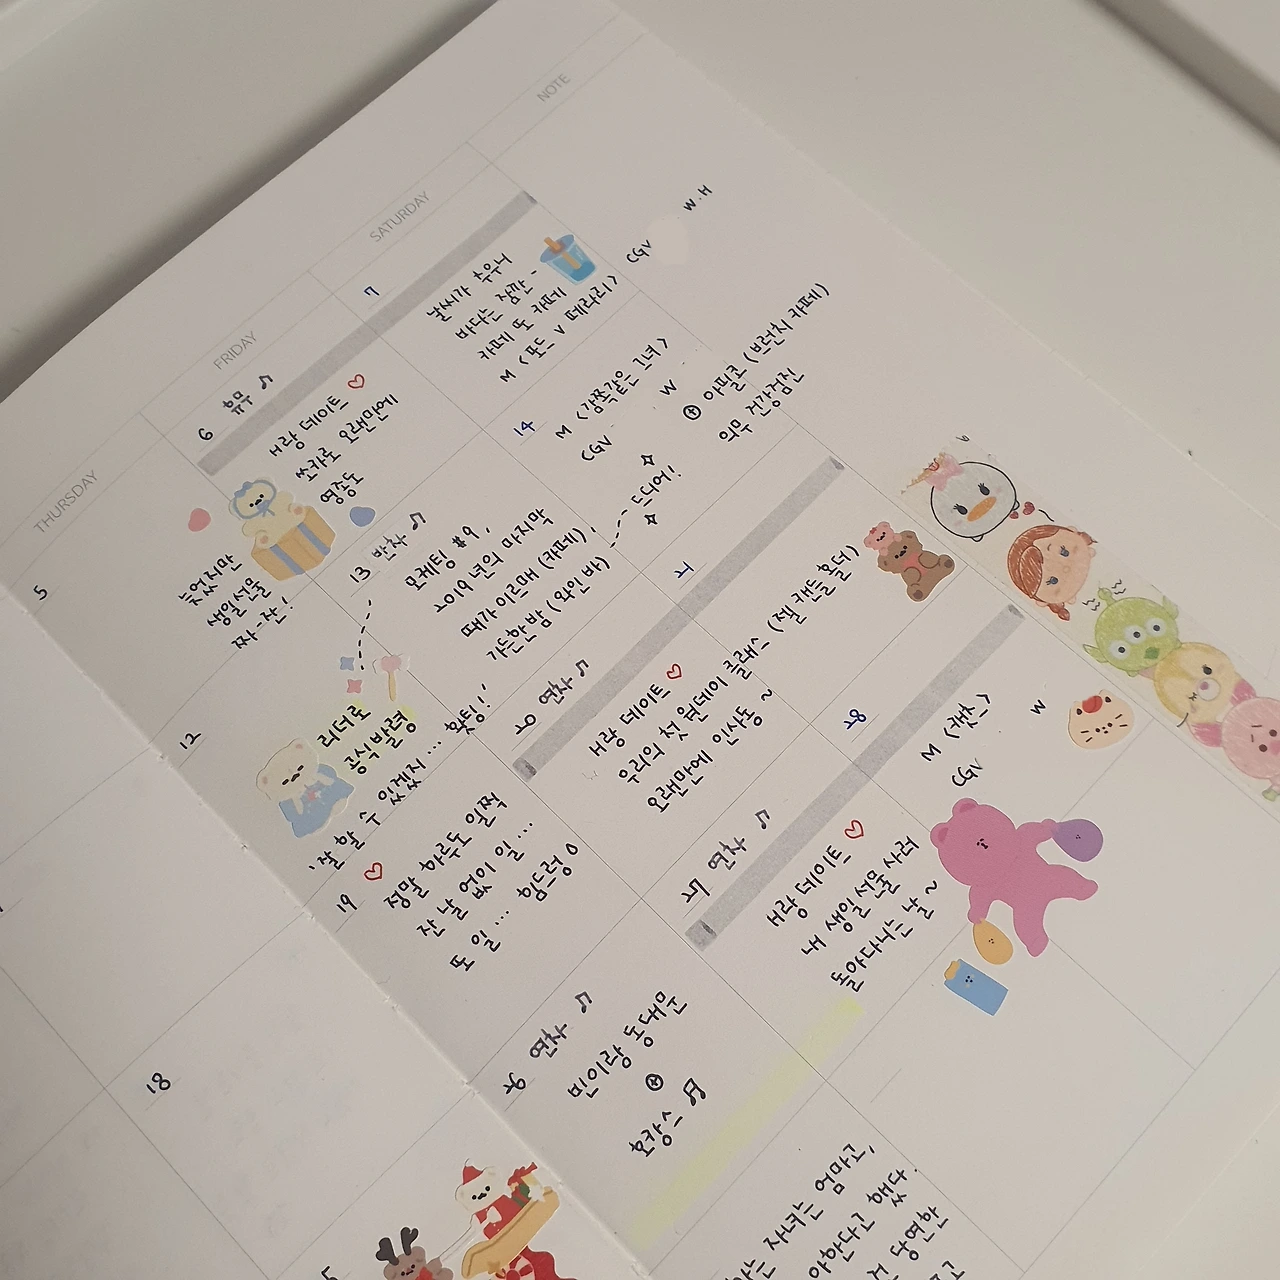 THURSDAY
FRIDAY
SATURDAY
NOTE
5
늦었지만
생일선물
짜-잔!
6 휴무
H랑 데이트
쏘카로 오랜만에
영종도
7
날씨가 추우니
바다는 잠깐-
카페 또 카페
M <포드 V 페라리>
CGV
W.H
12
리더로
공식발령
'잘 할 수 있겠지... 홧팅!'
13 반차
모케팅 #9,
2019년의 마지막
때가이르매 (카페),
가는한밤 (와인 바)
드디어!
14
M <감쪽같은 그녀>
CGV
W
⊕ 아필코 (브런치 카페)
의무 건강검진
18
19
정말 하루도 일찍
잔 날 없이 일...
또 일... 힘드렁 0
20 연차
H랑 데이트
우리의 첫 원데이 클래스 (젤 캔들 홀더)
오랜만에 인사동 ~
21
26 연차
민이랑 동대문
⊕
호캉스
27 연차
H랑 데이트
내 생일 선물 사러
돌아다니는 날 ~
28
M <캣츠>
CGV
W
자녀는 엄마고,
야한다고 했다.
당연한